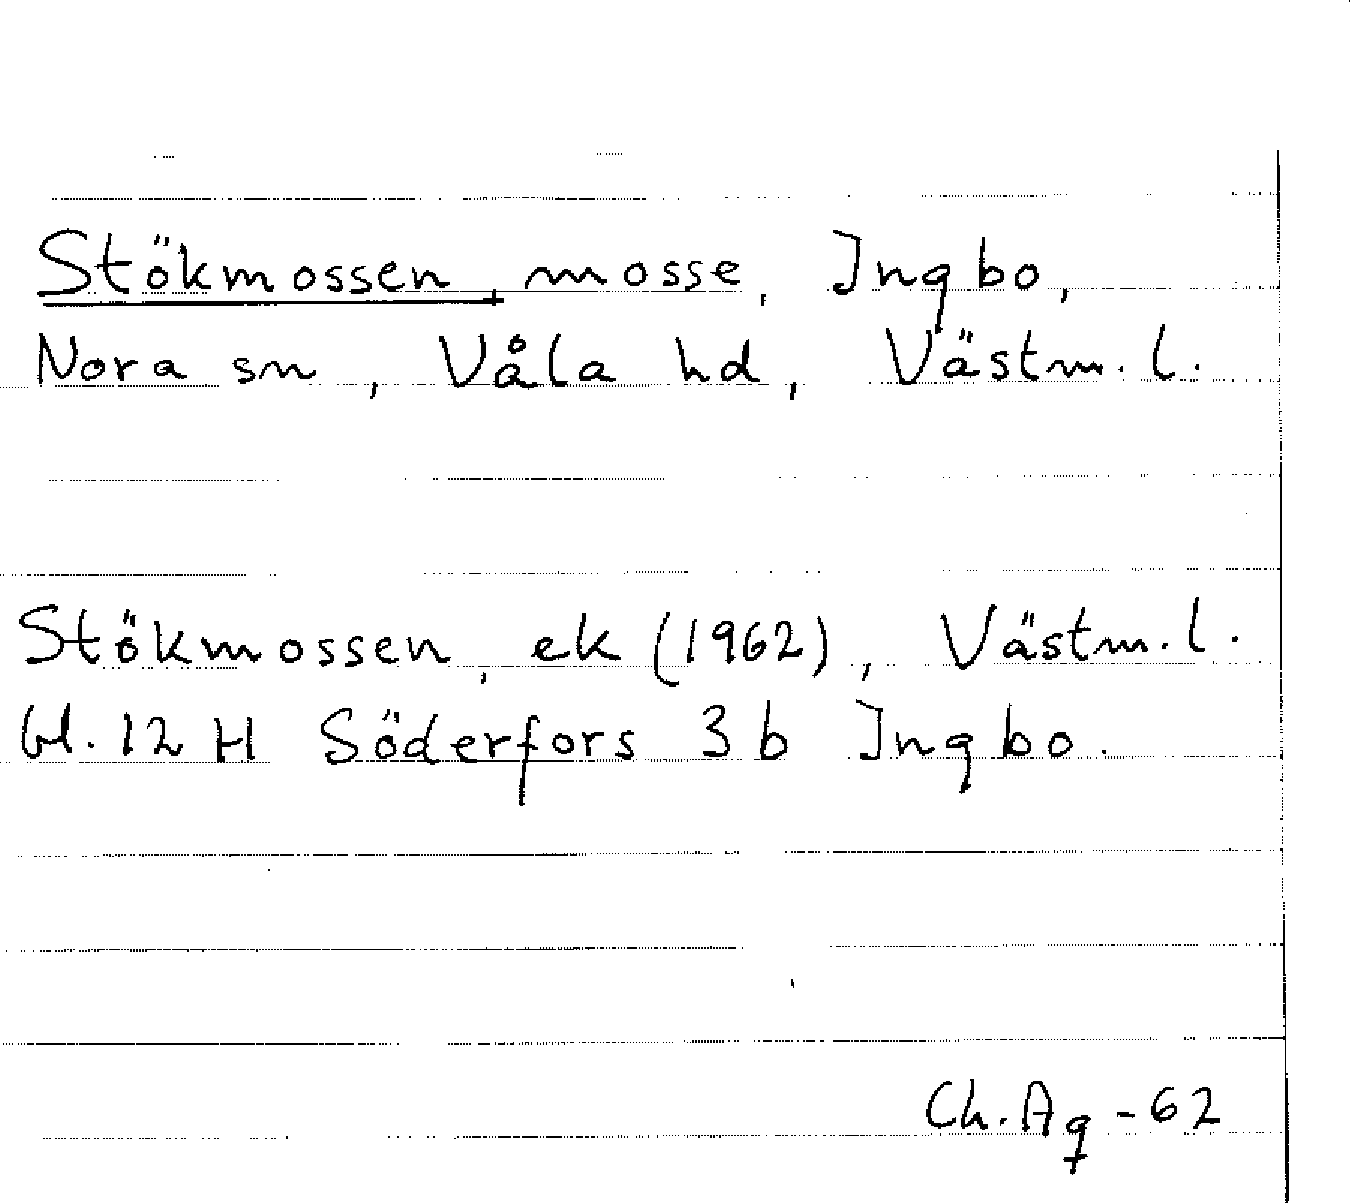 Stökmossen, mosse, Ingbo,
Nora sn, Våla hd, Västm. l.
Stökmossen, ek (1962), Västm. l.
bl. 12 H Söderfors 3 b Ingbo.
Ch. Ag -62